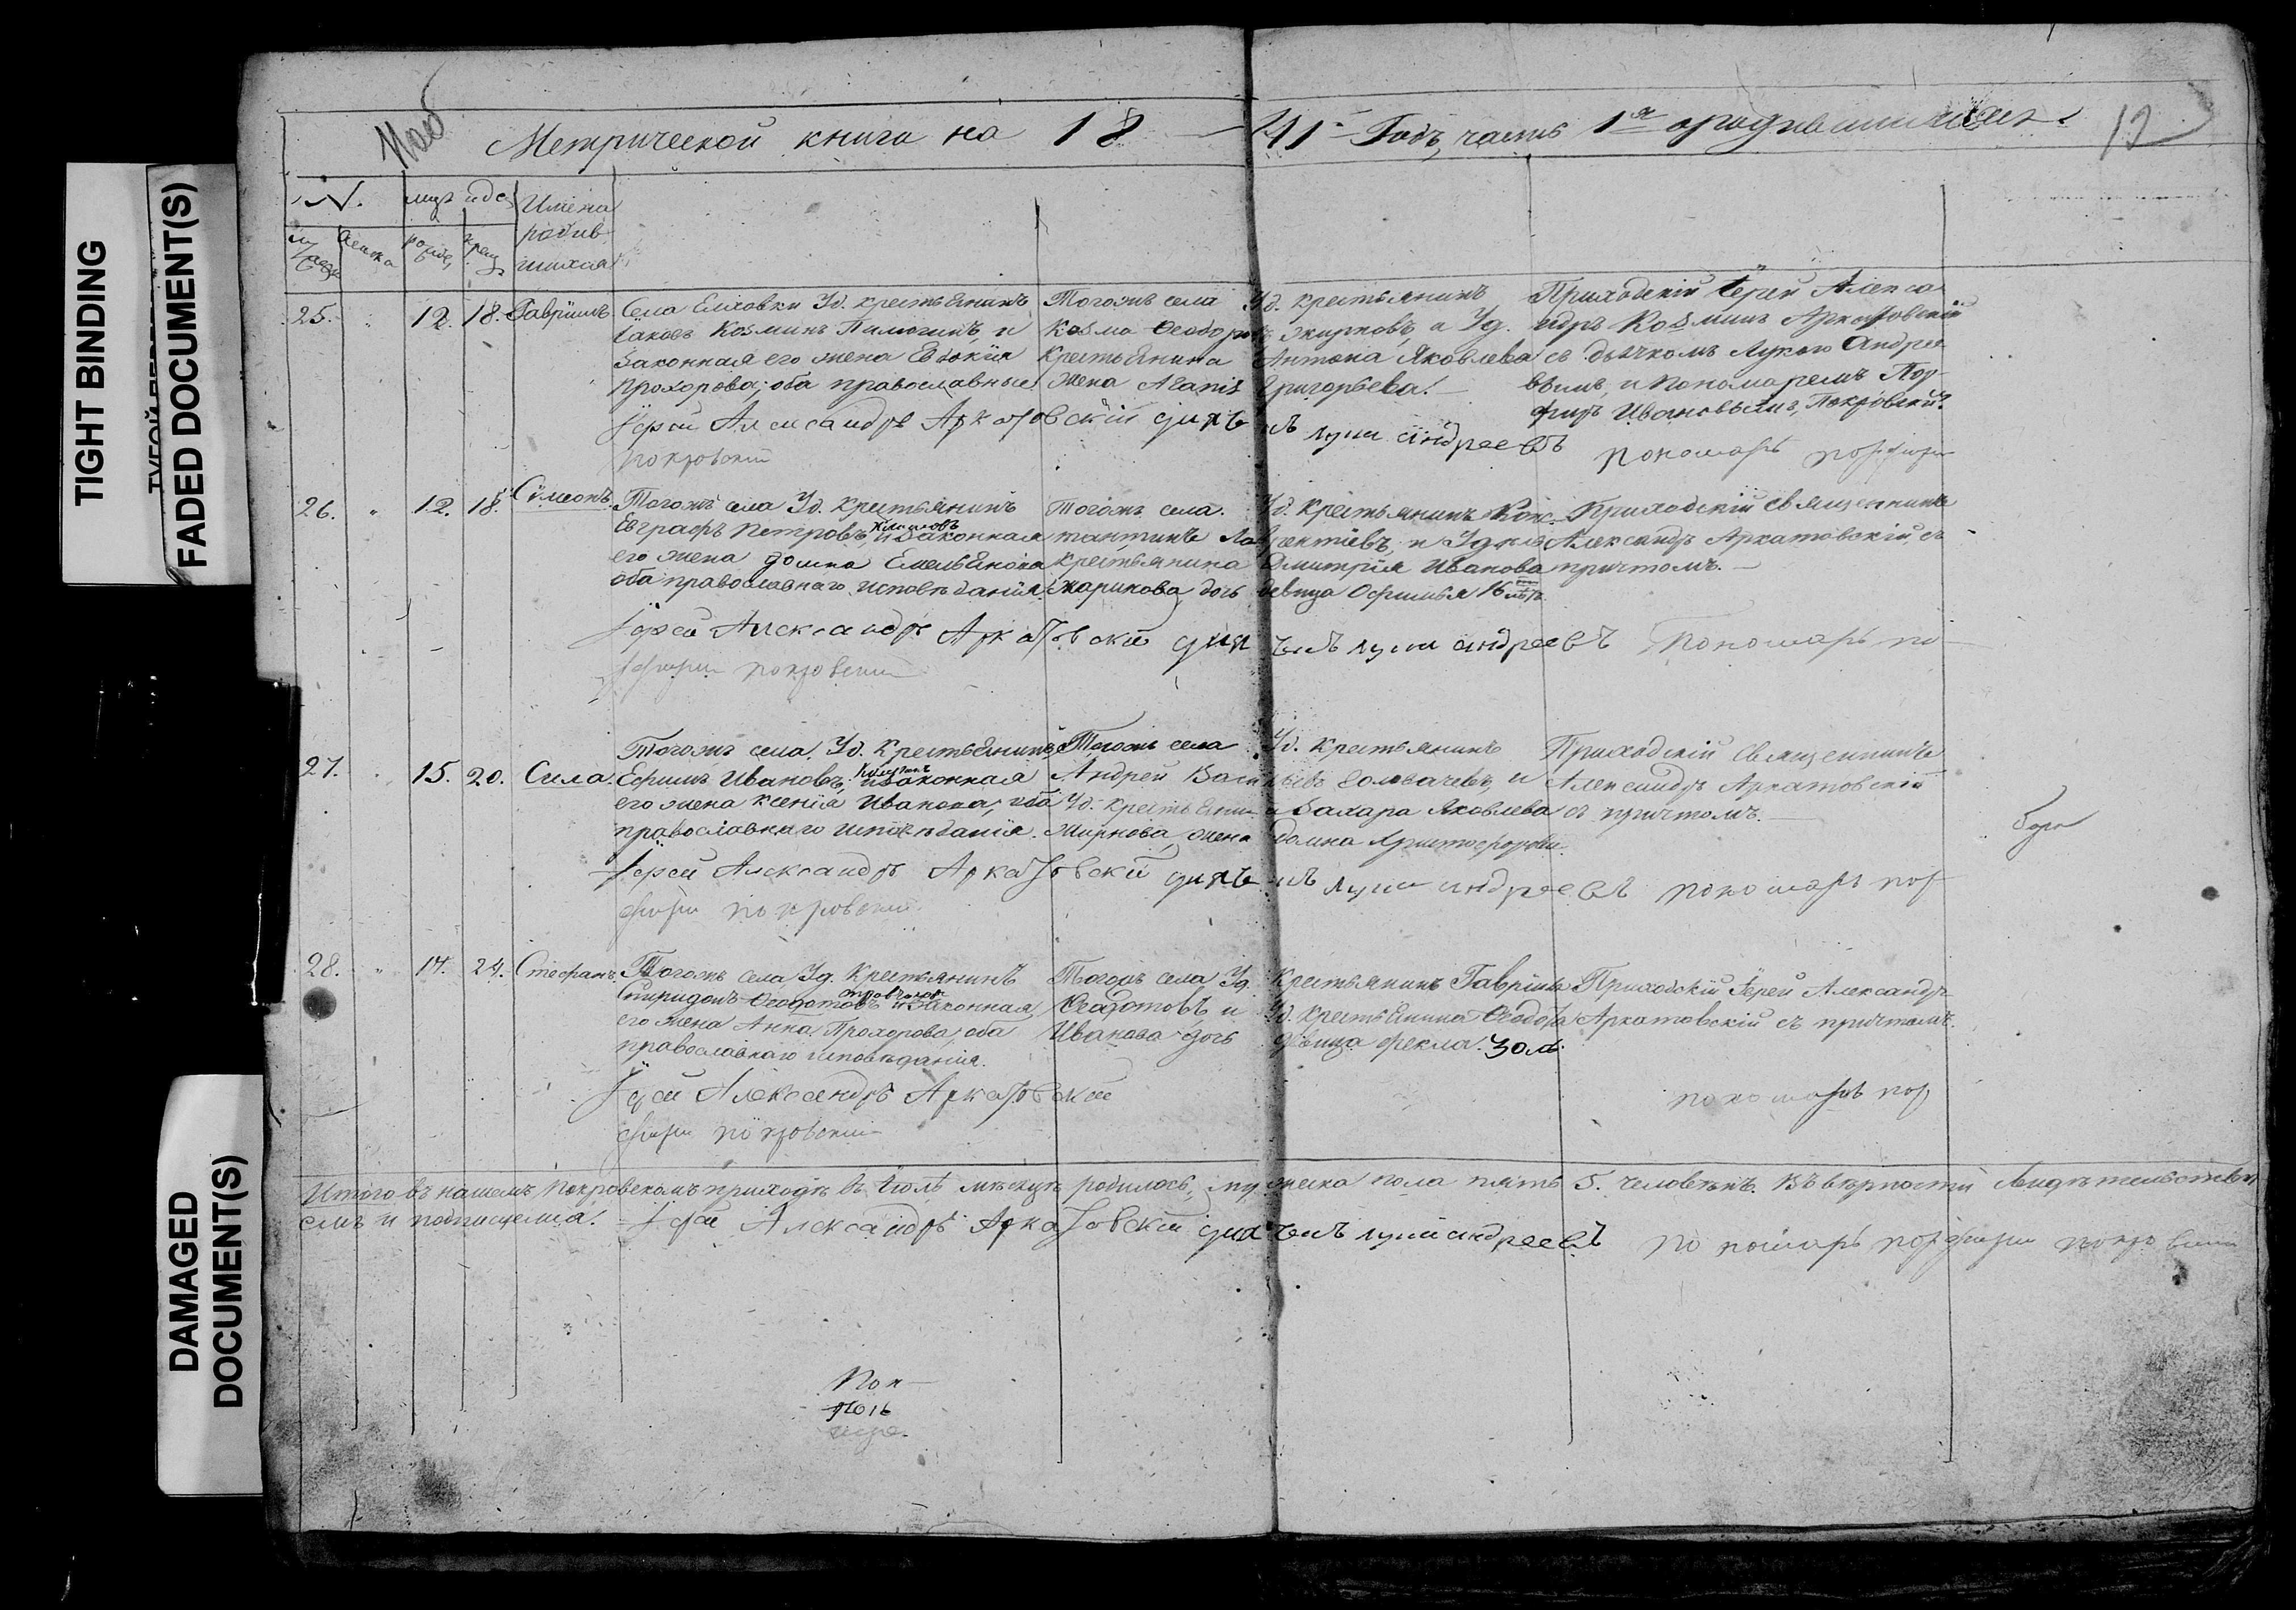 TIGHT BINDING
FADED DOCUMENT(S)
DAMAGED DOCUMENT(S)
Метрической книги на 18 41й Годъ, часть 1я о родившихся.
12
N.
Имена родив-шихся
25. 12. 18. Гавріилъ
Села Елховки Уд. крестьянинъ
Іаковъ Козминъ и
законная его жена Евдокія
Прохорова; оба православные
Тогожъ села Уд. крестьянинъ
Козма Ѳеодоровъ Жирновъ, и Уд.
крестьянина Антона Яковлева
жена Григорьева.
Приходскій Іерей Алекса-
ндръ Козминъ Аркатовскій
съ дьячкомъ Лукою Андрее-
вымъ и пономаремъ Пор-
фир Ивановымъ Покровским
Іерей Александръ Аркатовскій дьячекъ лука андреевъ пономарь порфири
покровский
26. 12. 18. Симеонъ
Тогожъ села Уд. Крестьянинъ
Евграфъ Петровъ, и законная
его жена домна Емельянова
оба православнаго исповѣданія.
Тогожъ села Уд. Крестьянинъ Конс-
тантинъ Лаврентіевъ, и Уд.
крестьянина Дмитрія Иванова
Жарикова дочь девица Офимья 16 лѣтъ
Приходскій священникъ
Александръ Аркатовскій съ
причтомъ.
Іерей Александръ Аркатовскій дьячекъ лука андреевъ Пономарь по
рфири покровский
27. 15. 20. Сила.
Тогожъ села Уд. Крестьянинъ
Ефимъ Ивановъ, и законная
его жена Ксенія Иванова, оба
православнаго исповѣданія.
Тогожъ села Уд. Крестьянинъ
Андрей Васильевъ Головачевъ, и
Уд. крестьянина Захара Яковлева
Жирнова жена домна Христофорова
Приходскій священникъ
Александръ Аркатовскій
съ причтомъ.
Іерей Александръ Аркатовскій дьячекъ лука андреевъ пономарь пор
фири покровский
28. 17. 24. Стефанъ.
Тогожъ села Уд. Крестьянинъ
Спиридонъ Ѳеодотовъ и законная
его жена Анна Прохорова, оба
православнаго исповѣданія.
Тогожъ села Уд. Крестьянинъ Гавріилъ
Ѳеодотовъ и Уд. крестьянина Ѳеодота
Иванова дочь дѣвица Фекла 30 л.
Приходскій Іерей Александръ
Аркатовскій съ причтомъ.
Іерей Александръ Аркатовскій
пономарь пор
фири покровский
Итого въ нашемъ Покровскомъ приходѣ въ Іюлѣ мѣсяцѣ родилось, мужеска пола пять 5. человѣкъ. Въ вѣрности свидѣтельствуемъ и подписуемся.
Іерей Александръ Аркатовскій дьячекъ лука андреевъ пономарь порфири покровский